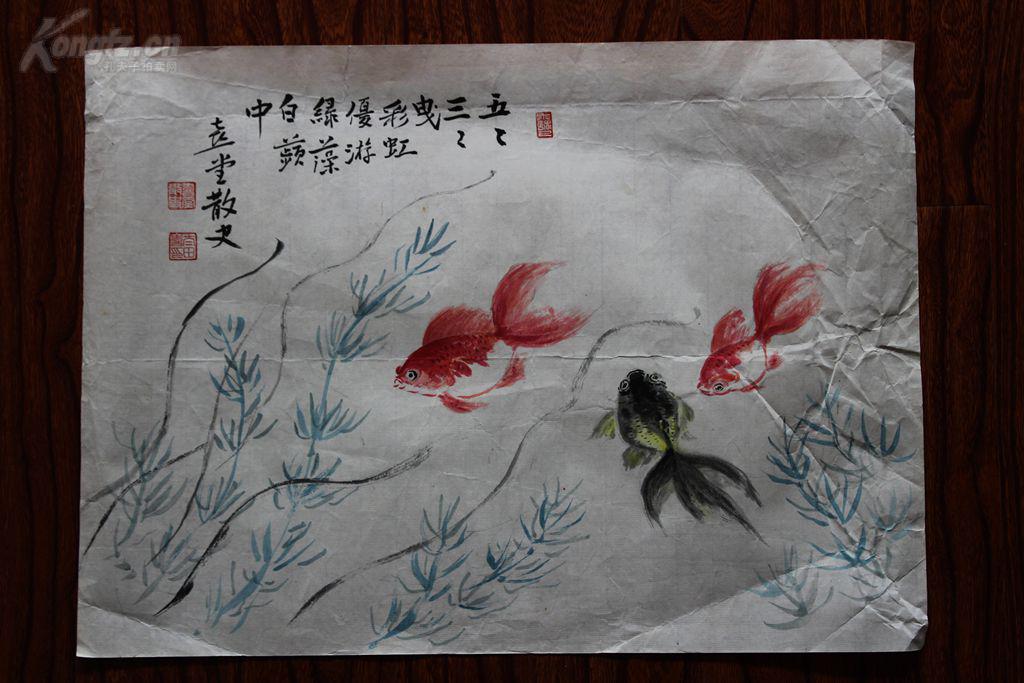 五〻
三〻
曳
彩虹
優游
綠藻
白蘋
中
㐂堂散史
Kongfz.cn
孔夫子拍卖网